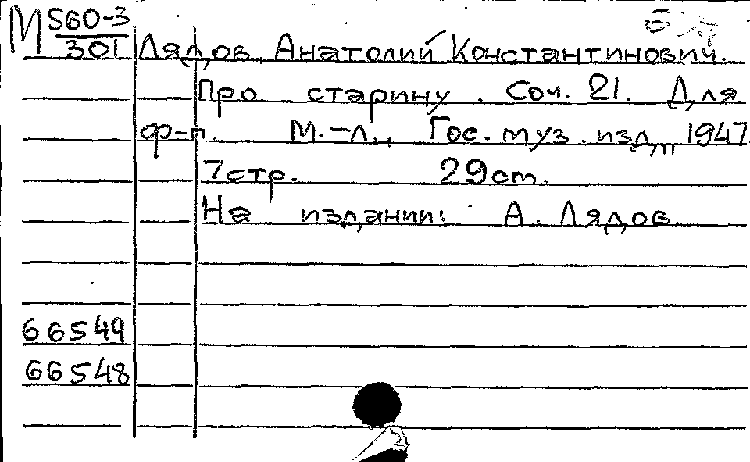 М S60-3
301 Лядов, Анатолий Константинович.
Про старину. Соч. 21. Для
ф-п. М.-Л., Гос. муз. изд., 1947
7 стр. 29 cm.
На издании: А. Лядов
66549
66548